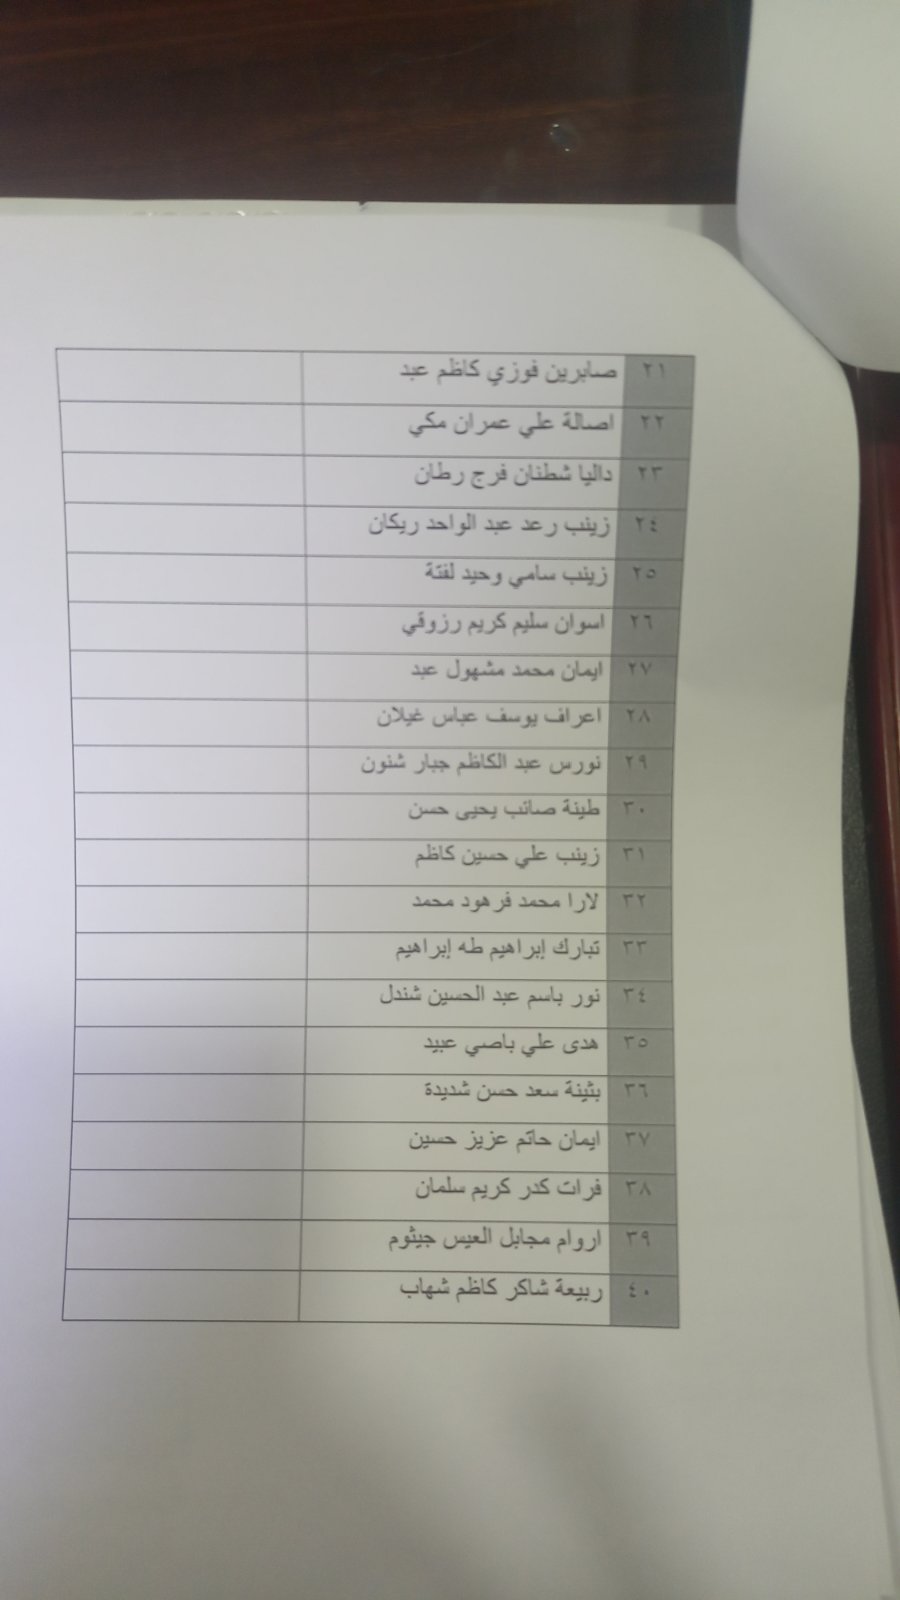 ٢١ صابرين فوزي كاظم عبد
٢٢ اصالة علي عمران مكي
٢٣ داليا شطنان فرج رطان
٢٤ زينب رعد عبد الواحد ريكان
٢٥ زينب سامي وحيد لفتة
٢٦ اسوان سليم كريم رزوقي
٢٧ ايمان محمد مشهول عبد
٢٨ اعراف يوسف عباس غيلان
٢٩ نورس عبد الكاظم جبار شنون
٣٠ طيبة صائب يحيى حسن
٣١ زينب علي حسين كاظم
٣٢ لارا محمد فرهود محمد
٣٣ تبارك إبراهيم طه إبراهيم
٣٤ نور باسم عبد الحسين شندل
٣٥ هدى علي باصي عبيد
٣٦ بثينة سعد حسن شديدة
٣٧ ايمان حاتم عزيز حسين
٣٨ فرات كدر كريم سلمان
٣٩ اروام مجابل العيس جيثوم
٤٠ ربيعة شاكر كاظم شهاب